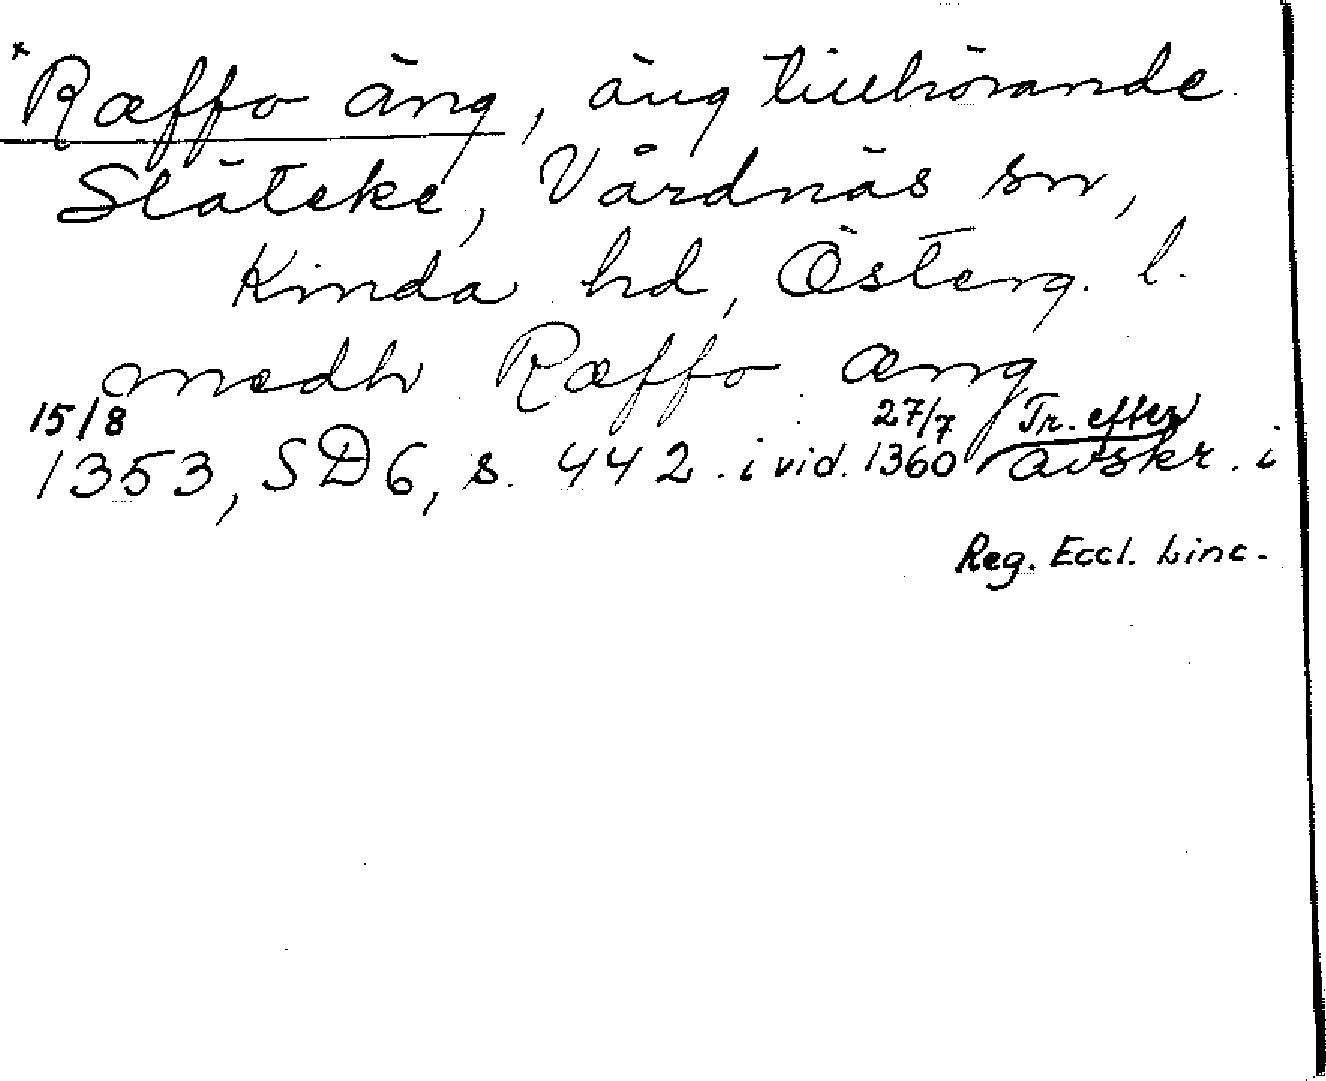 *Ræffo äng, äng tillhörande
Släteke, Vårdnäs sn,
Kinda hd, Österg. l.
medh Ræffo æng
15/8 27/7 Tr. efter
1353, SD6, s. 442 . i vid. 1360 avskr. i
Reg. Eccl. Linc.